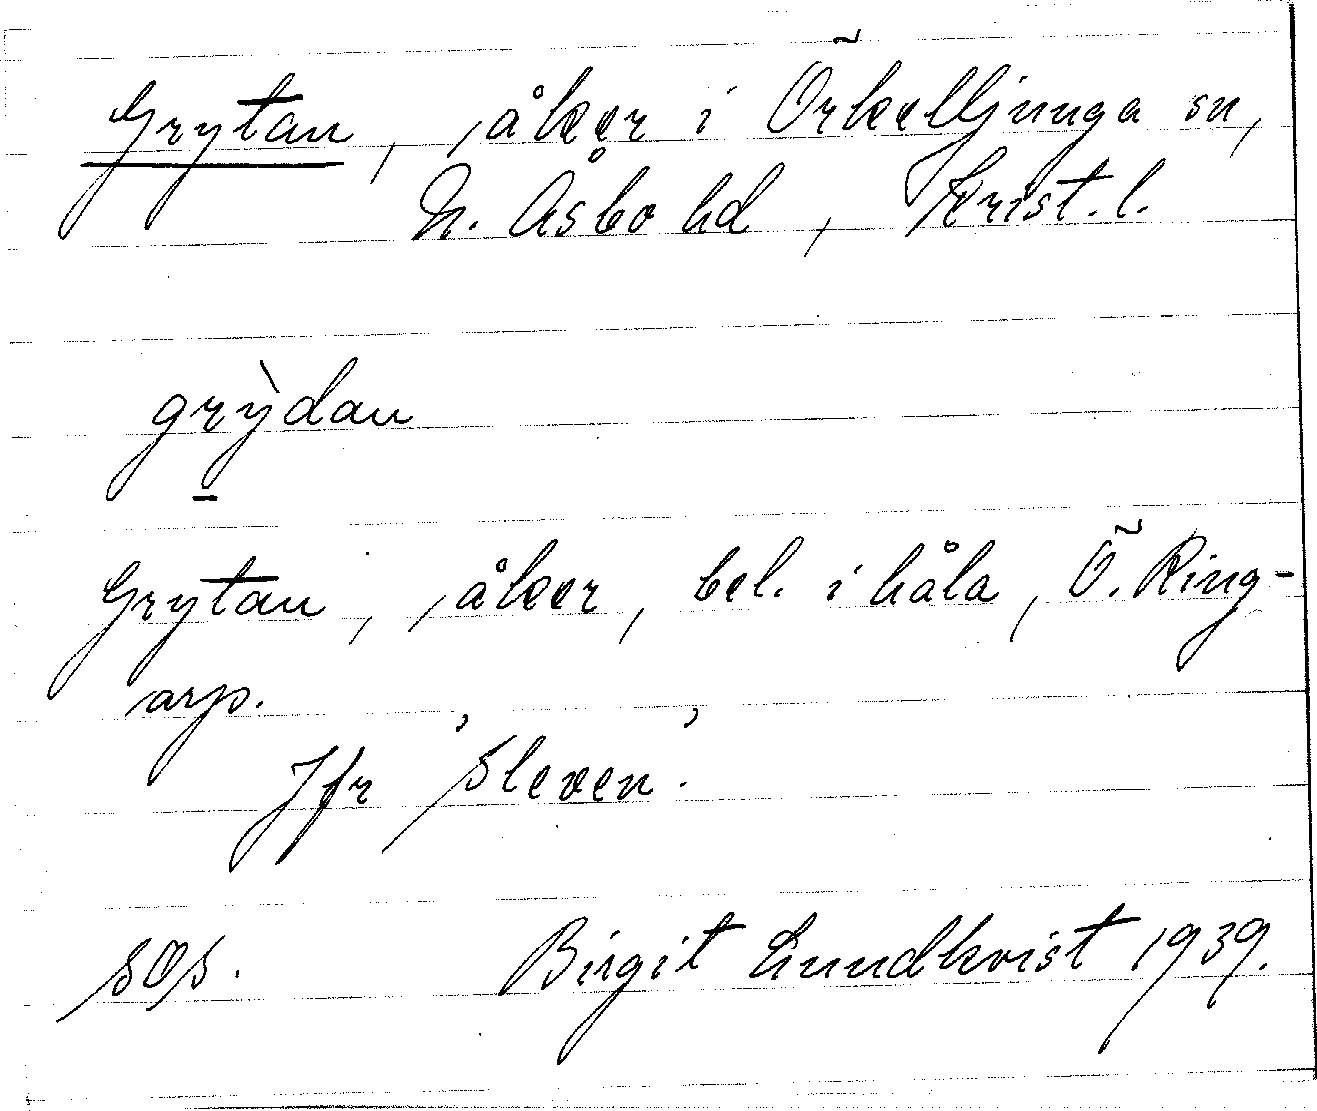 Grytan, åker i Örkelljunga sn,
N. Åsbo hd, Krist. l.
grỳdan
Grytan, åker, bel. i håla, Ö. Ring-
arp.
Jfr 'Sleven'.
sås.
Birgit Lundkvist 1939.